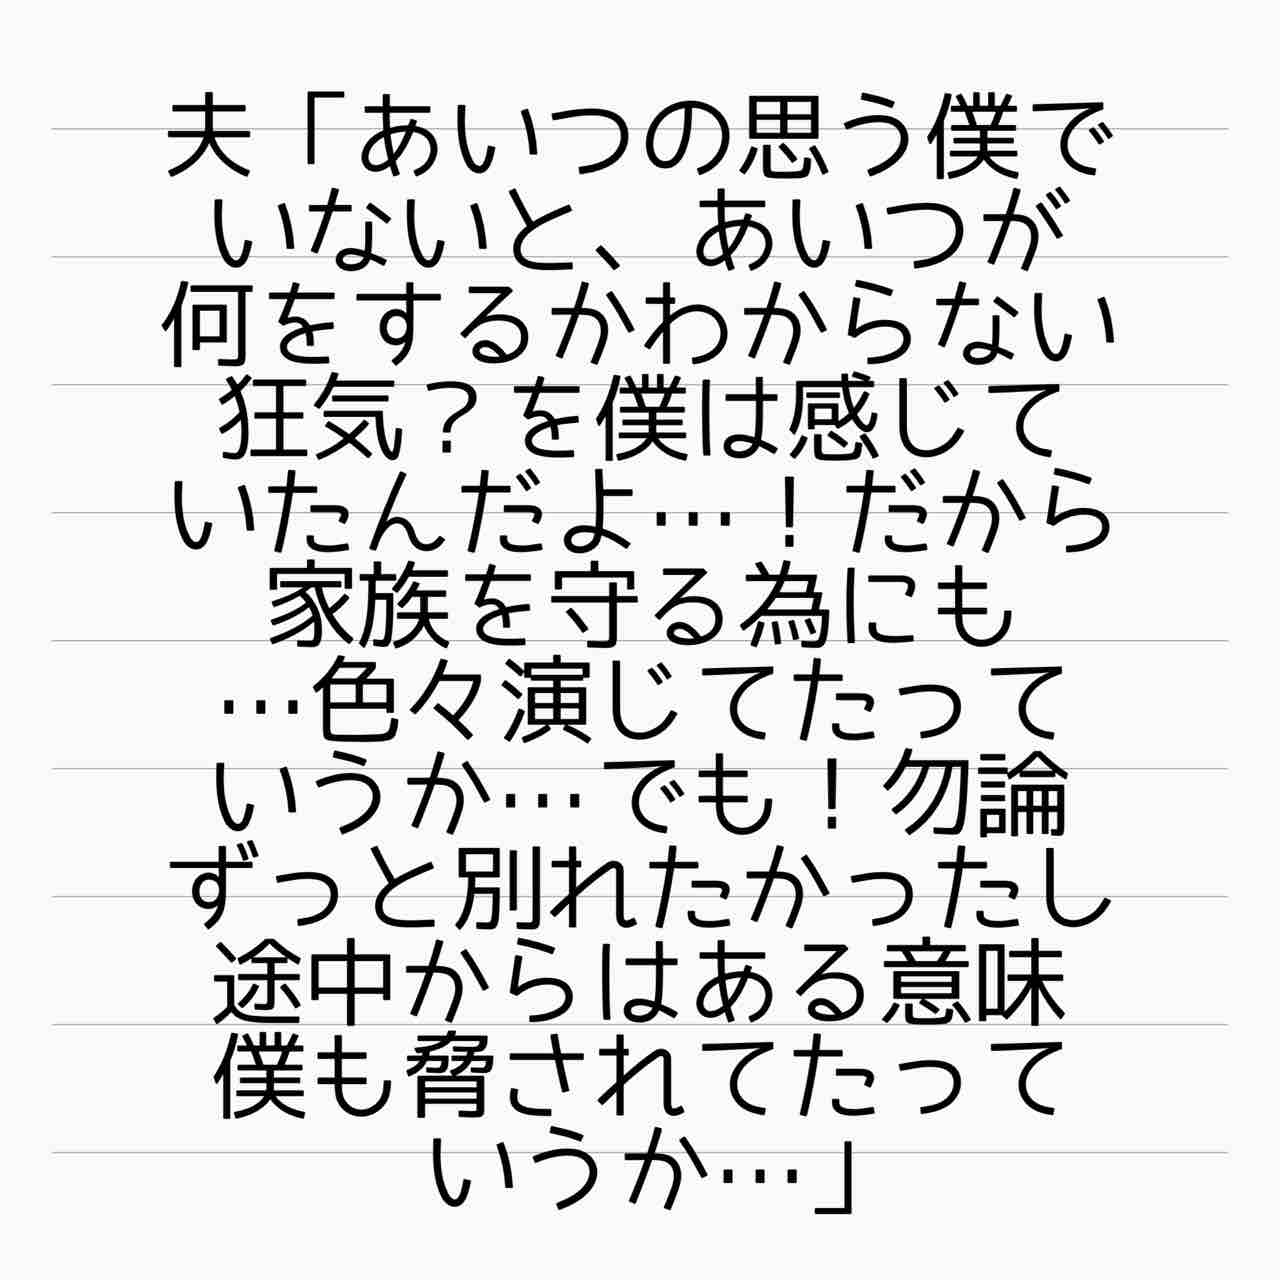 夫「あいつの思う僕で
いないと、あいつが
何をするかわからない
狂気？を僕は感じて
いたんだよ…！だから
家族を守る為にも
…色々演じてたって
いうか…でも！勿論
ずっと別れたかったし
途中からはある意味
僕も脅されてたって
いうか…」